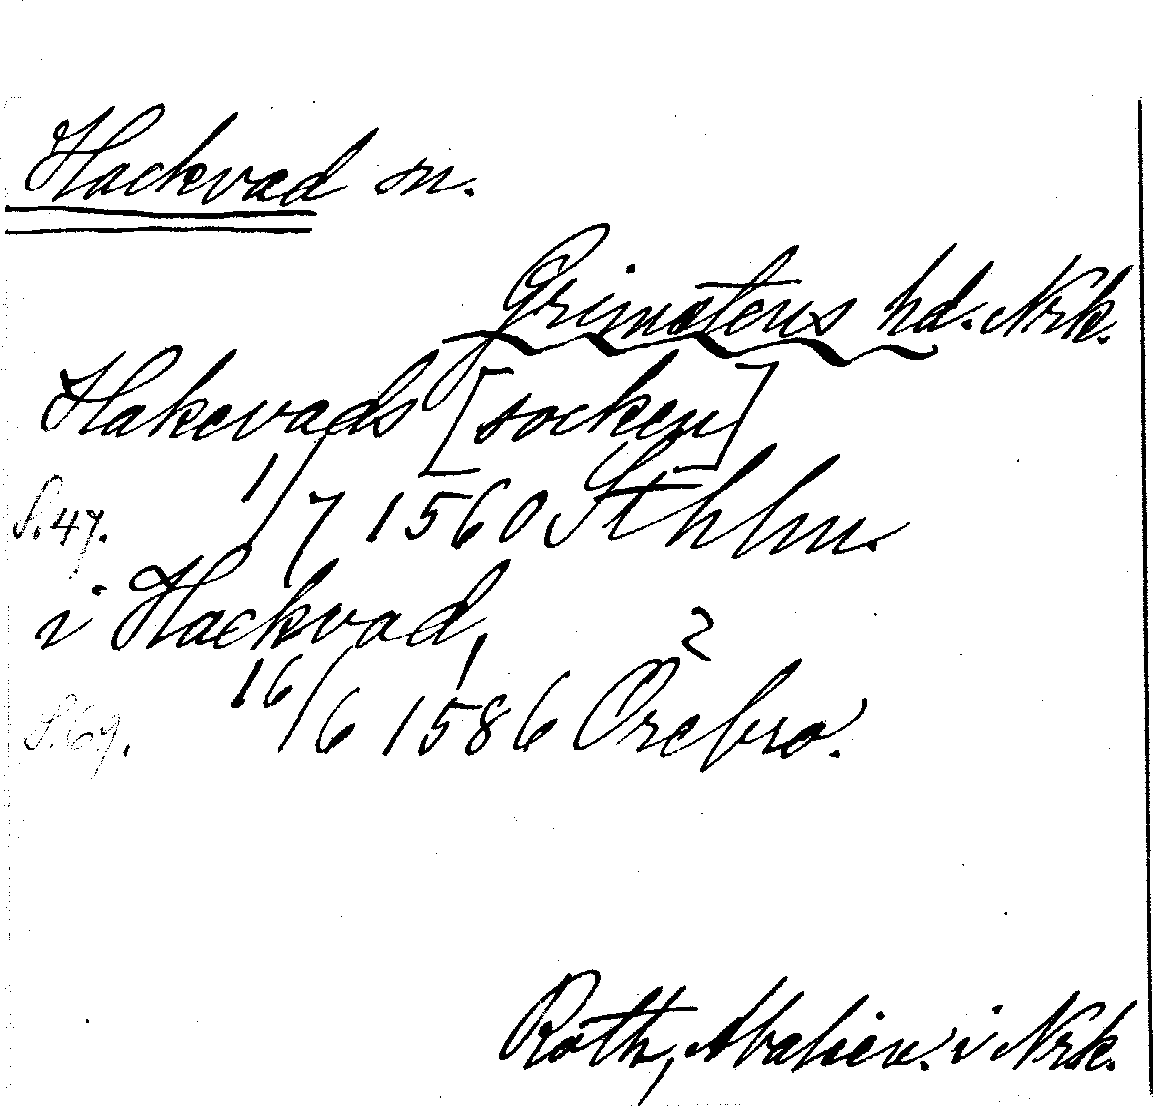 Hackvad sn.
Grimstens hd. Nrk.
Hakevads [socken]
S. 47. 1/7 1560 Sthlm.
i Hackvad,
S. 69. 16/6 1586 Örebro.
Roth, i Nrk.